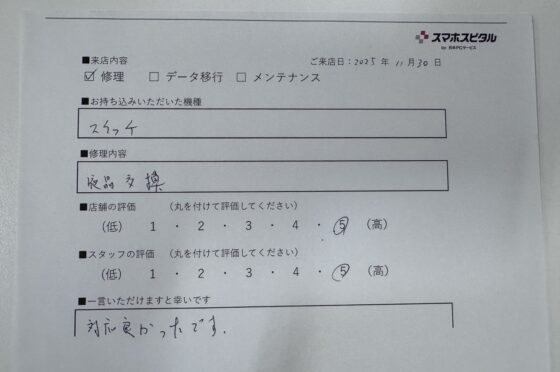 スマホスピタル
by 日本PCサービス
■来店内容
ご来店日：2025 年 11 月 30 日
☑ 修理 □ データ移行 □ メンテナンス
■お持ち込みいただいた機種
スイッチ
■修理内容
液晶交換
■店舗の評価 （丸を付けて評価してください）
（低） 1 ・ 2 ・ 3 ・ 4 ・ ⑤ （高）
■スタッフの評価 （丸を付けて評価してください）
（低） 1 ・ 2 ・ 3 ・ 4 ・ ⑤ （高）
■一言いただけますと幸いです
対応良かったです.